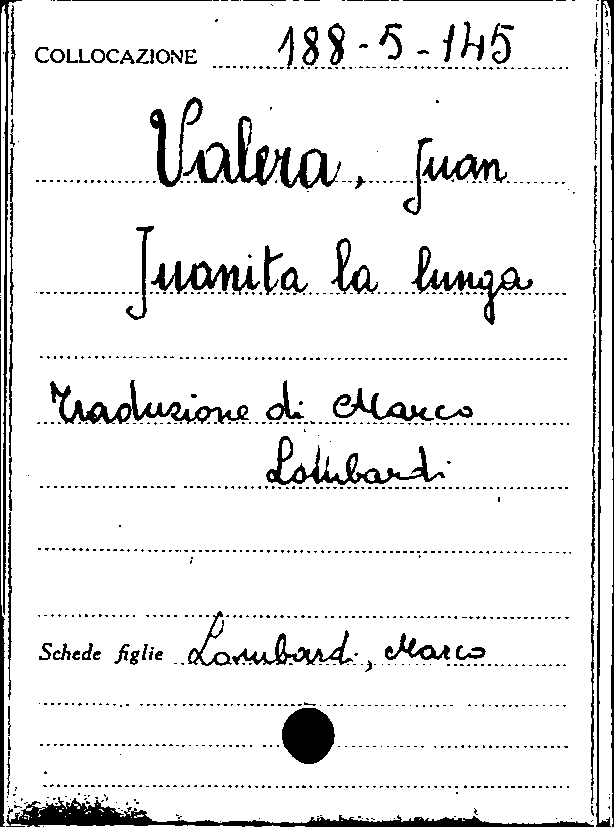 COLLOCAZIONE 188-5-145
Valera, Juan
Juanita la lunga
Traduzione di Marco
Lombardi
Schede figlie Lombardi, Marco